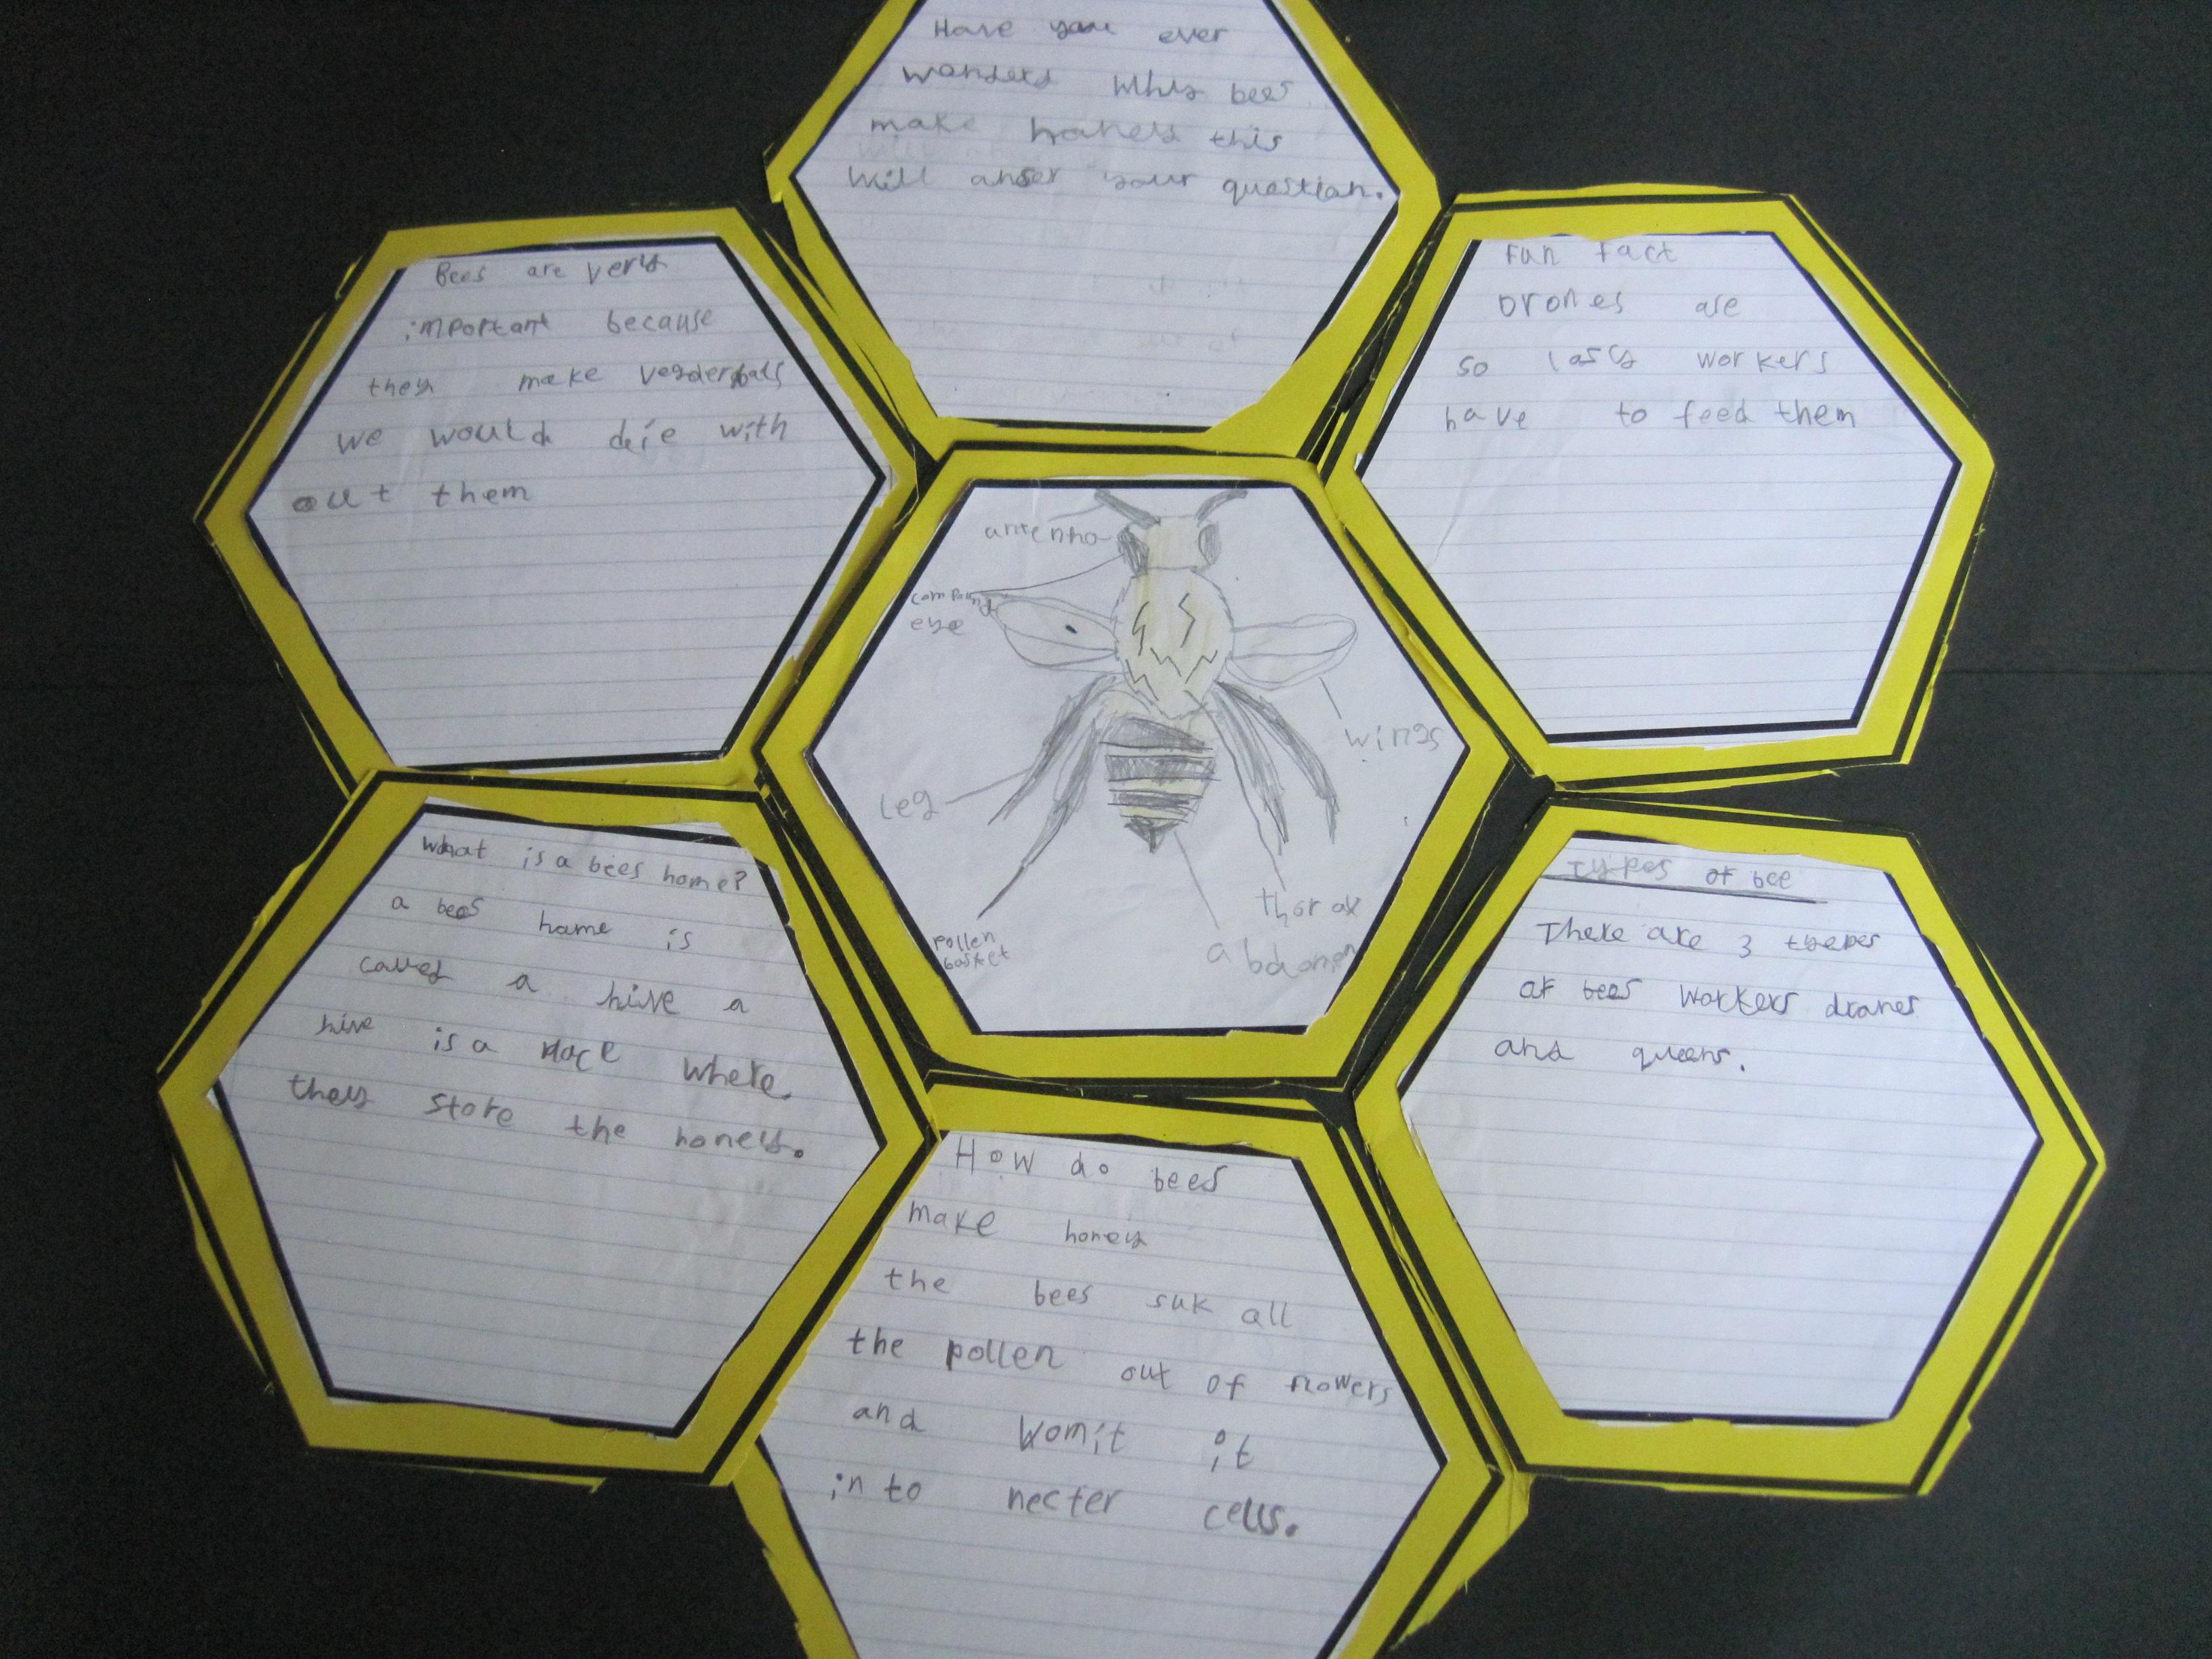 Have you ever
wonderd Why bees
make honey this
will anser your question.
Bees are very
important because
they make vegderbals
we would deie with
out them
Fun fact
Drones are
so lascy workers
have to feed them
antenna
compound
eye
wings
leg
thorax
abdomen
pollen
basket
What is a bees home?
a bees home is
called a hive a
hive is a place where
they store the honey.
Types of bee
There are 3 types
of bees workers drones
and queens.
How do bees
make honey
the bees suk all
the pollen out of flowers
and vomit it
in to necter cells.